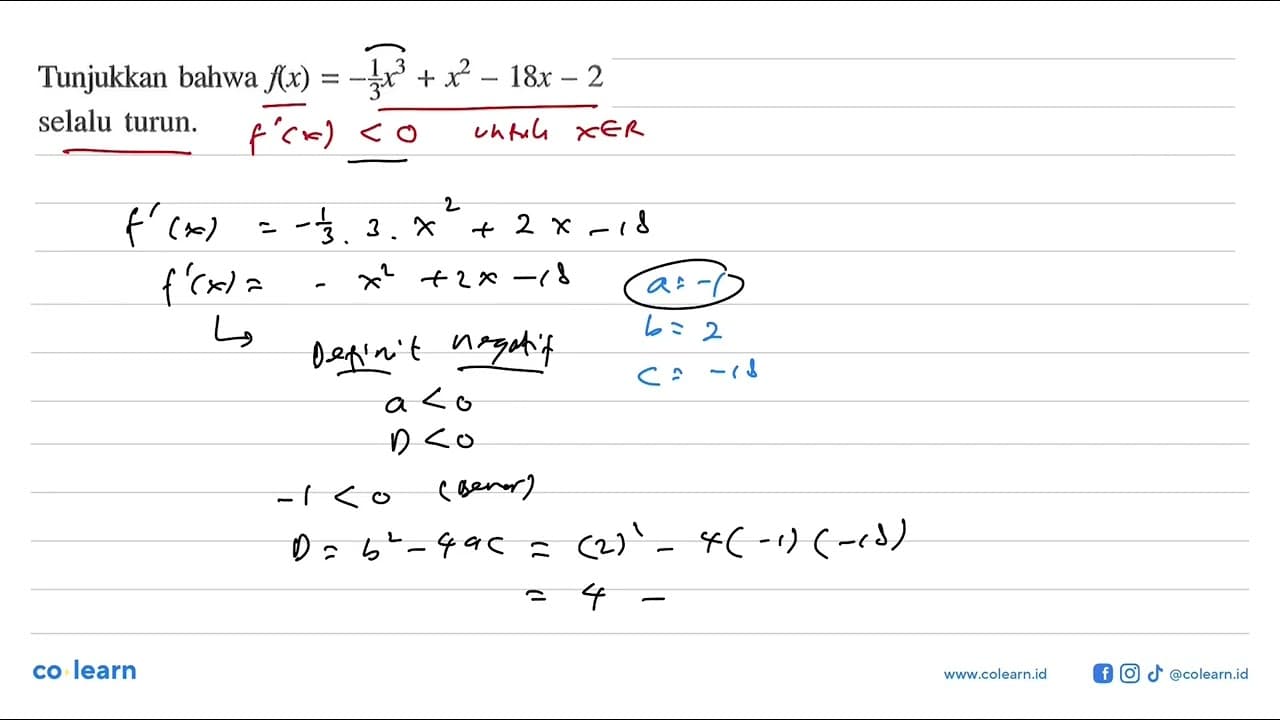 Tunjukkan bahwa f(x) = -1/3x³ + x² - 18x - 2
selalu turun. f'(x) < 0 untuk x∈R
f'(x) = -1/3 . 3 . x² + 2x - 18
f'(x) = - x² + 2x - 18
a = -1
b = 2
c = -18
↳ Definit negatif
a < 0
D < 0
-1 < 0 (Benar)
D = b² - 4ac = (2)² - 4(-1)(-18)
= 4 -
co learn
www.colearn.id
@colearn.id